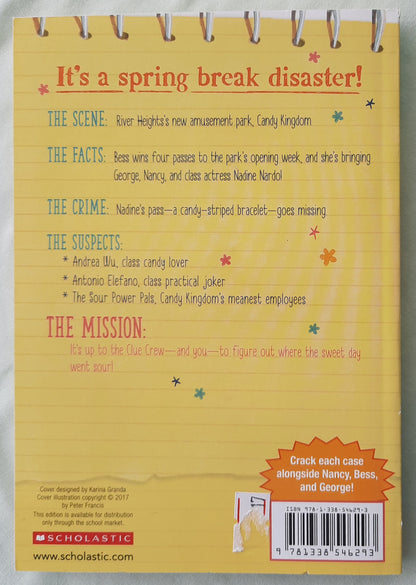 It's a spring break disaster!
THE SCENE: River Heights's new amusement park, Candy Kingdom
THE FACTS: Bess wins four passes to the park's opening week, and she's bringing
George, Nancy, and class actress Nadine Nardo!
THE CRIME: Nadine's pass—a candy-striped bracelet—goes missing.
THE SUSPECTS:
* Andrea Wu, class candy lover
* Antonio Elefano, class practical joker
* The Sour Power Pals, Candy Kingdom's meanest employees
THE MISSION:
It's up to the Clue Crew—and you—to figure out where the sweet day
went sour!
Crack each case
alongside Nancy, Bess,
and George!
Cover designed by Karina Granda
Cover illustration copyright © 2017
by Peter Francis
This edition is available for distribution
only through the school market.
SCHOLASTIC
www.scholastic.com
17
ISBN 978-1-338-54629-3
9 781338 546293